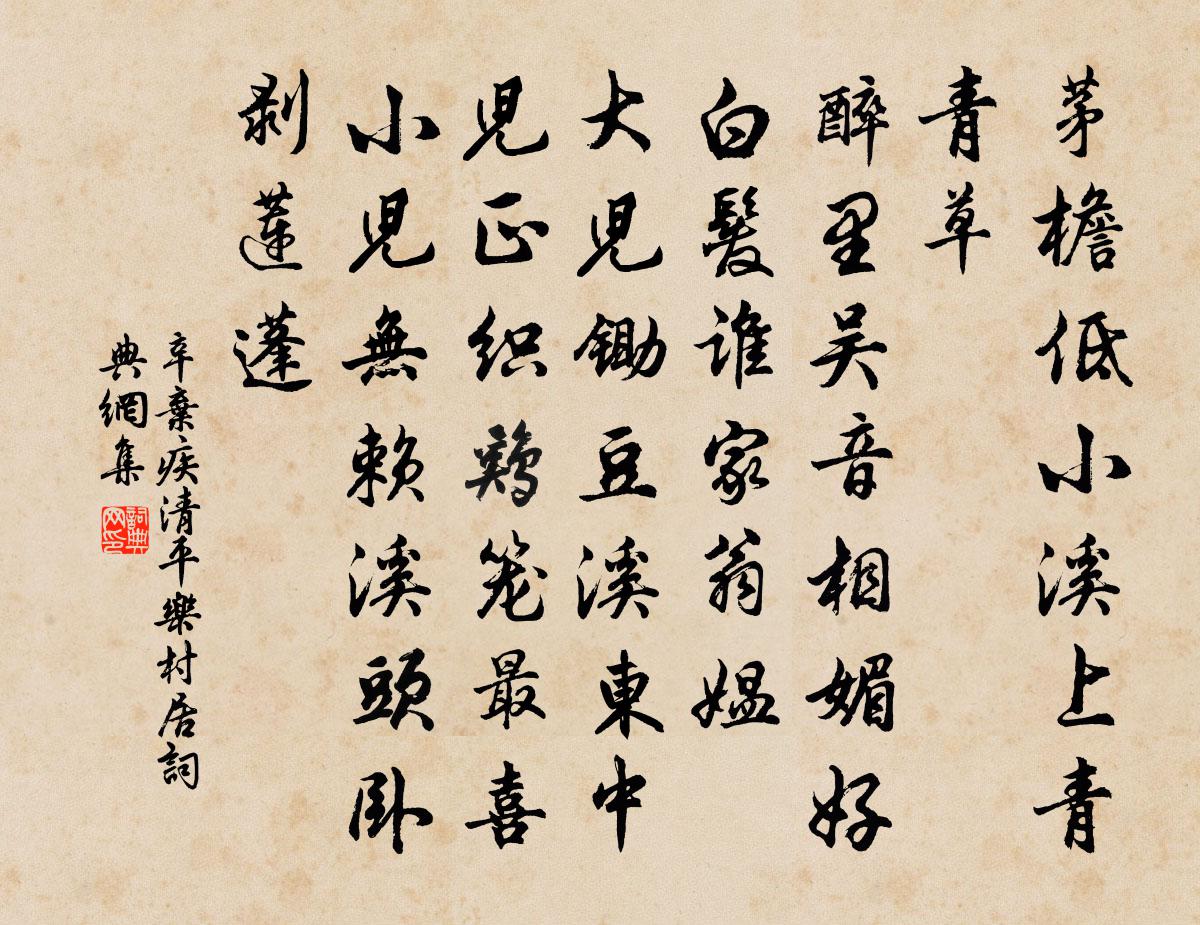 茅檐低小溪上青
青草
醉里吴音相媚好
白髮谁家翁媪
大児锄豆溪東中
児正织鷄笼最喜
小児無赖溪頭卧
剥莲蓬
辛棄疾清平樂村居詞
典網集
詞典
网印